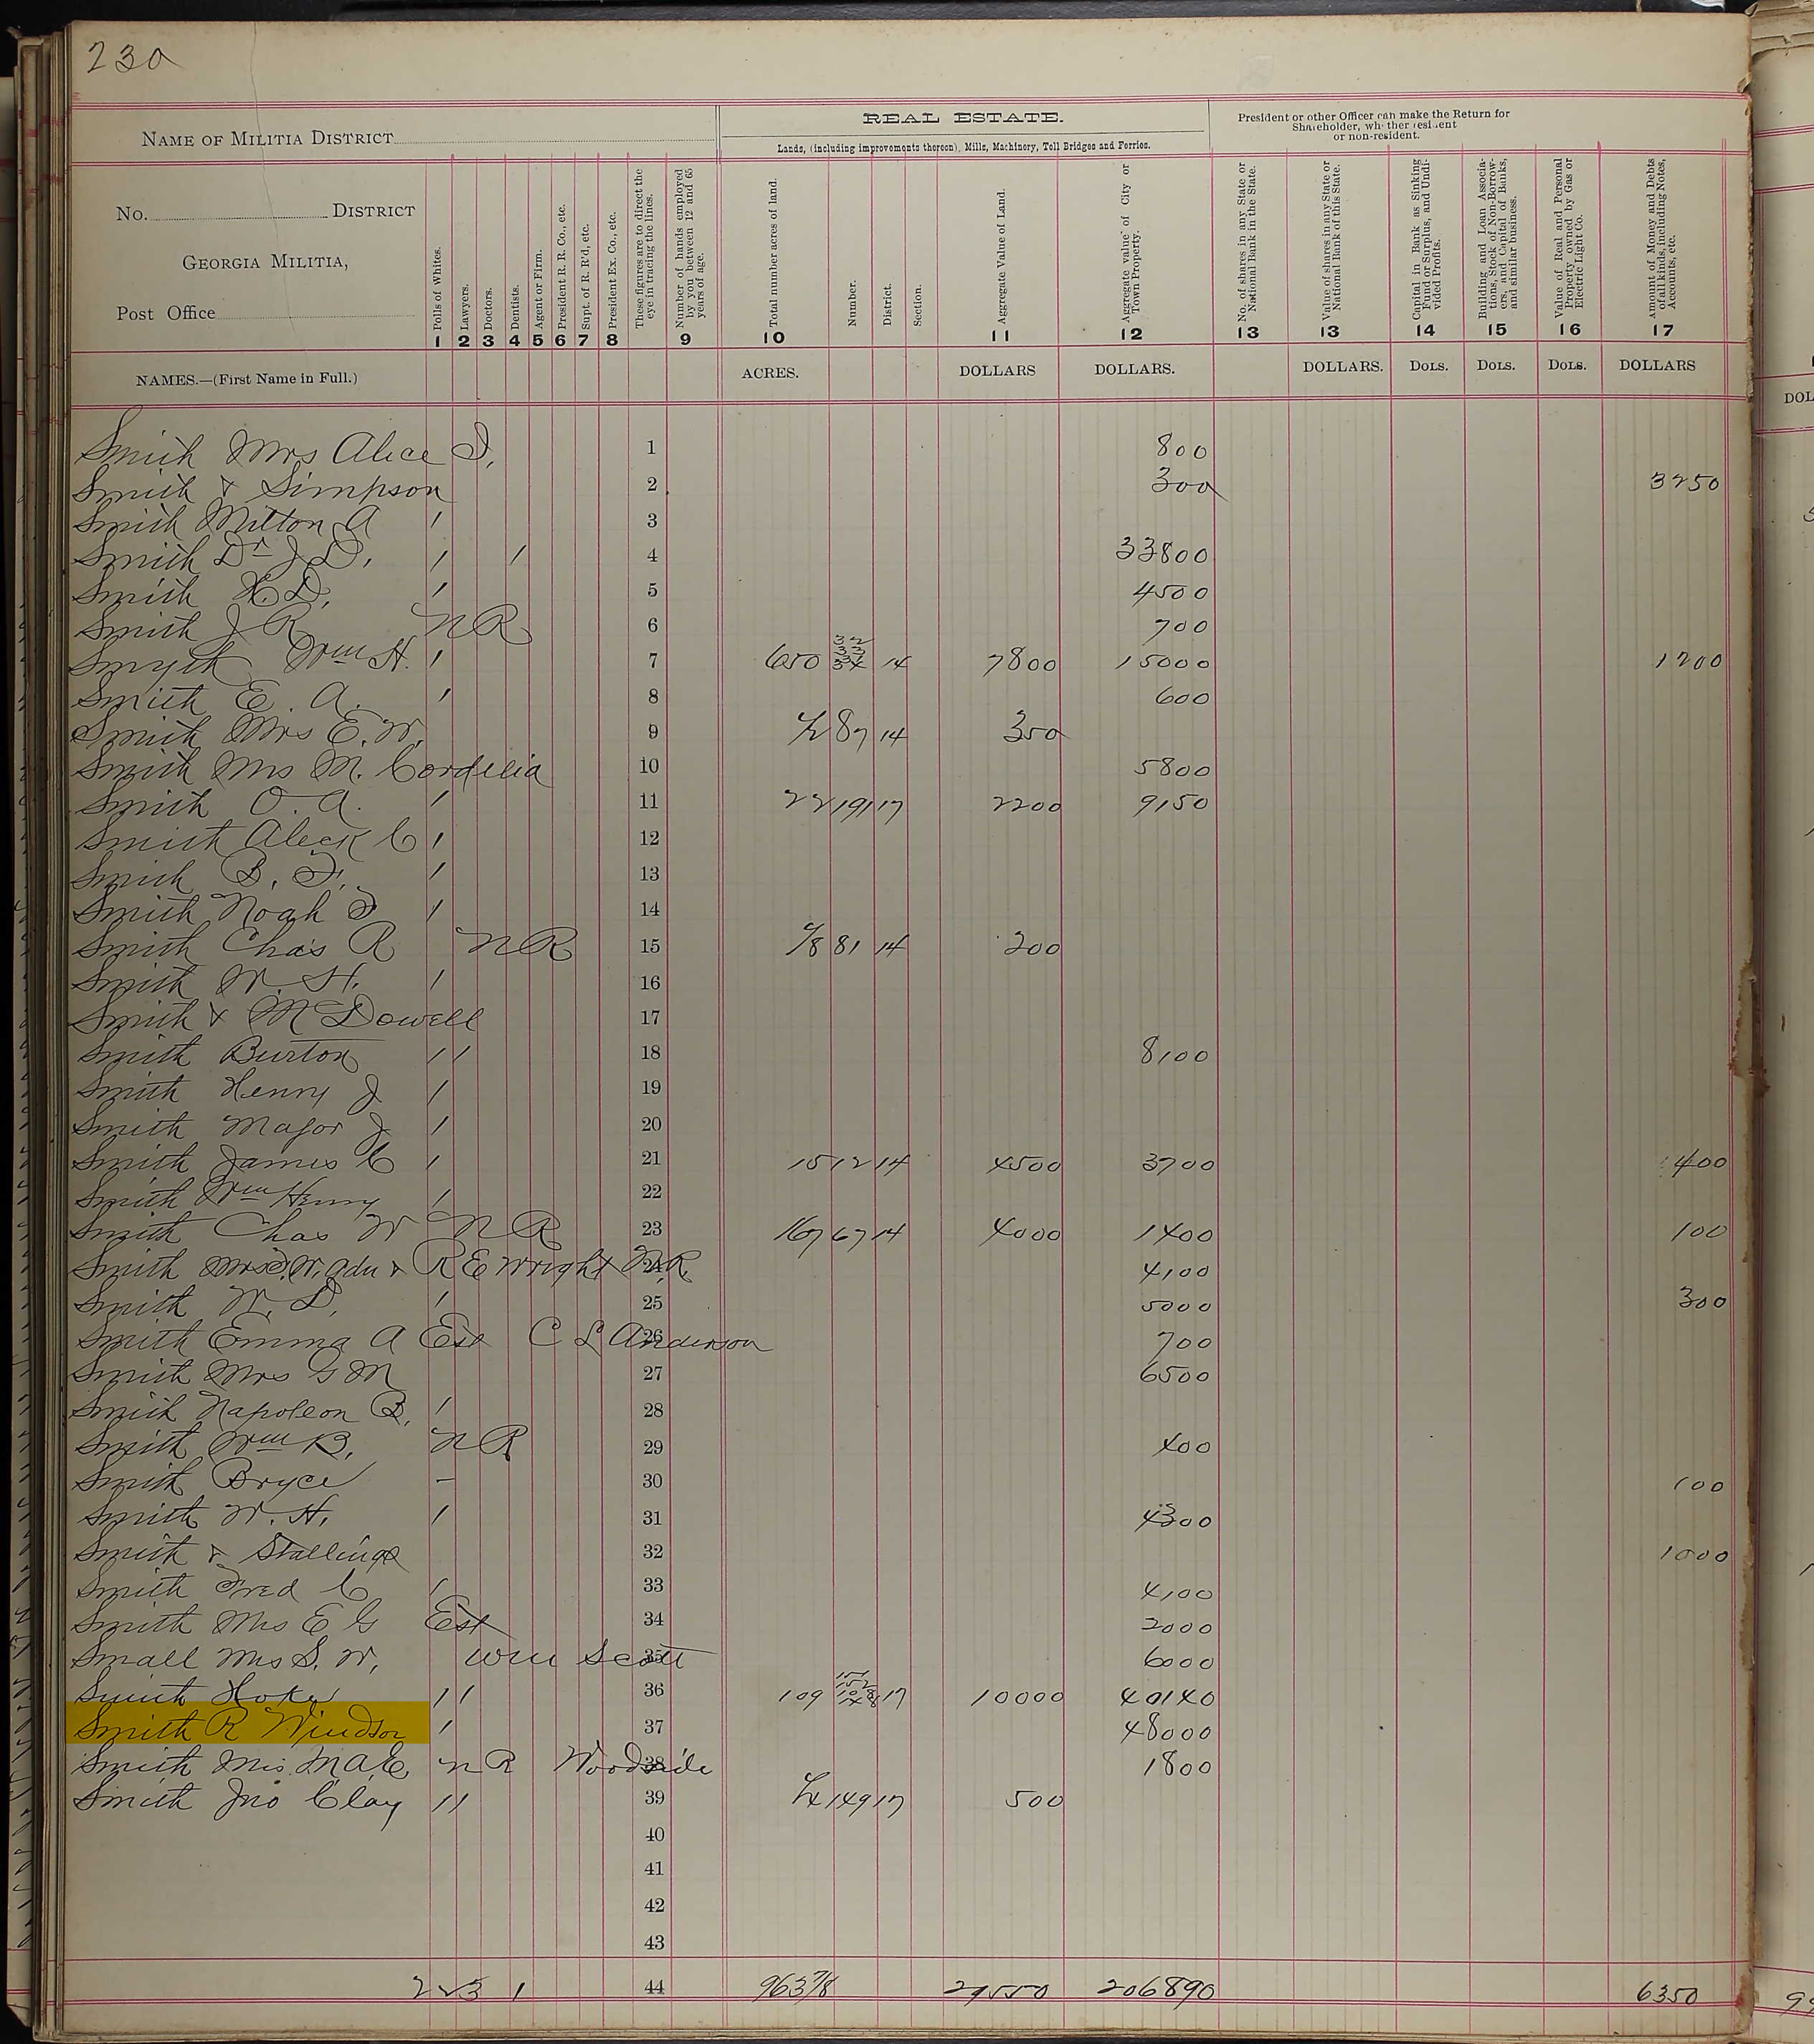 230
NAME OF MILITIA DISTRICT
No. DISTRICT
GEORGIA MILITIA,
Post Office
NAMES.—(First Name in Full.)
Polls of Whites. 1
Lawyers. 2
Doctors. 3
Dentists. 4
Agent or Firm. 5
President R. R. Co., etc. 6
Supt. of R. R'd, etc. 7
President Ex. Co., etc. 8
These figures are to direct the eye in tracing the lines.
Number of hands employed by you between 12 and 65 years of age. 9
REAL ESTATE.
Lands, (including improvements thereon), Mills, Machinery, Toll Bridges and Ferries.
Total number acres of land. 10 ACRES.
Number.
District.
Section.
Aggregate Value of Land. 11 DOLLARS
Aggregate value of City or Town Property. 12 DOLLARS.
President or other Officer can make the Return for Shareholder, whether resident or non-resident.
No. of shares in any State or National Bank in the State. 13
Value of shares in any State or National Bank of this State. 13 DOLLARS.
Capital in Bank as Sinking Fund or Surplus, and Undivided Profits. 14 DOLS.
Building and Loan Associations, Stock of Non-Borrowers, and Capital of Banks, and similar business. 15 DOLS.
Value of Real and Personal Property owned by Gas or Electric Light Co. 16 DOLS.
Amount of Money and Debts of all kinds, including Notes, Accounts, etc. 17 DOLLARS
DOL
Smith Mrs Alice I, 1 800
Smith & Simpson 2 300 3250
Smith Milton A / 3
Smith Dr J D, / / 4 33800
Smith H. D, / 5 4500
Smith J R N R 6 700
Smyth Wm H. / 7 650 14 7800 15000 1200
Smith E. A. / 8 600
Smith Mrs E. W. 9 1/2 87 14 350
Smith Mrs M. Cordelia 10 5800
Smith O. A. / 11 22 191 17 2200 9150
Smith Aleck C / 12
Smith B. F. / 13
Smith Noah I / 14
Smith Chas R N R 15 1/8 81 14 200
Smith W. H. / 16
Smith & McDowell 17
Smith Burton / / 18 8100
Smith Henry J / 19
Smith Major J / 20
Smith James C / 21 15 12 14 4500 3700 400
Smith Wm Henry / 22
Smith Chas W N R 23 167 67 14 4000 1400 100
Smith Mrs W. adm & R E Wright N.R. 24 4100
Smith W. D. / 25 5000 300
Smith Emma A Est C L Anderson 26 700
Smith Mrs G M 27 6500
Smith Napoleon B, / 28
Smith Wm B. N R 29 400
Smith Bryce – 30 100
Smith W. H. / 31 4300
Smith & Stallings 32 1000
Smith Fred C / 33 4100
Smith Mrs E G Est 34 2000
Small Mrs S. W. Wm Scott 35 6000
Smith Hoke / / 36 109 17 10000 40140
Smith R Windsor / 37 48000
Smith Mrs. M A E N R Woodside 38 1800
Smith Jno Clay / / 39 1/4 149 17 500
40
41
42
43
22 3 1 44 963 7/8 29550 206890 6350